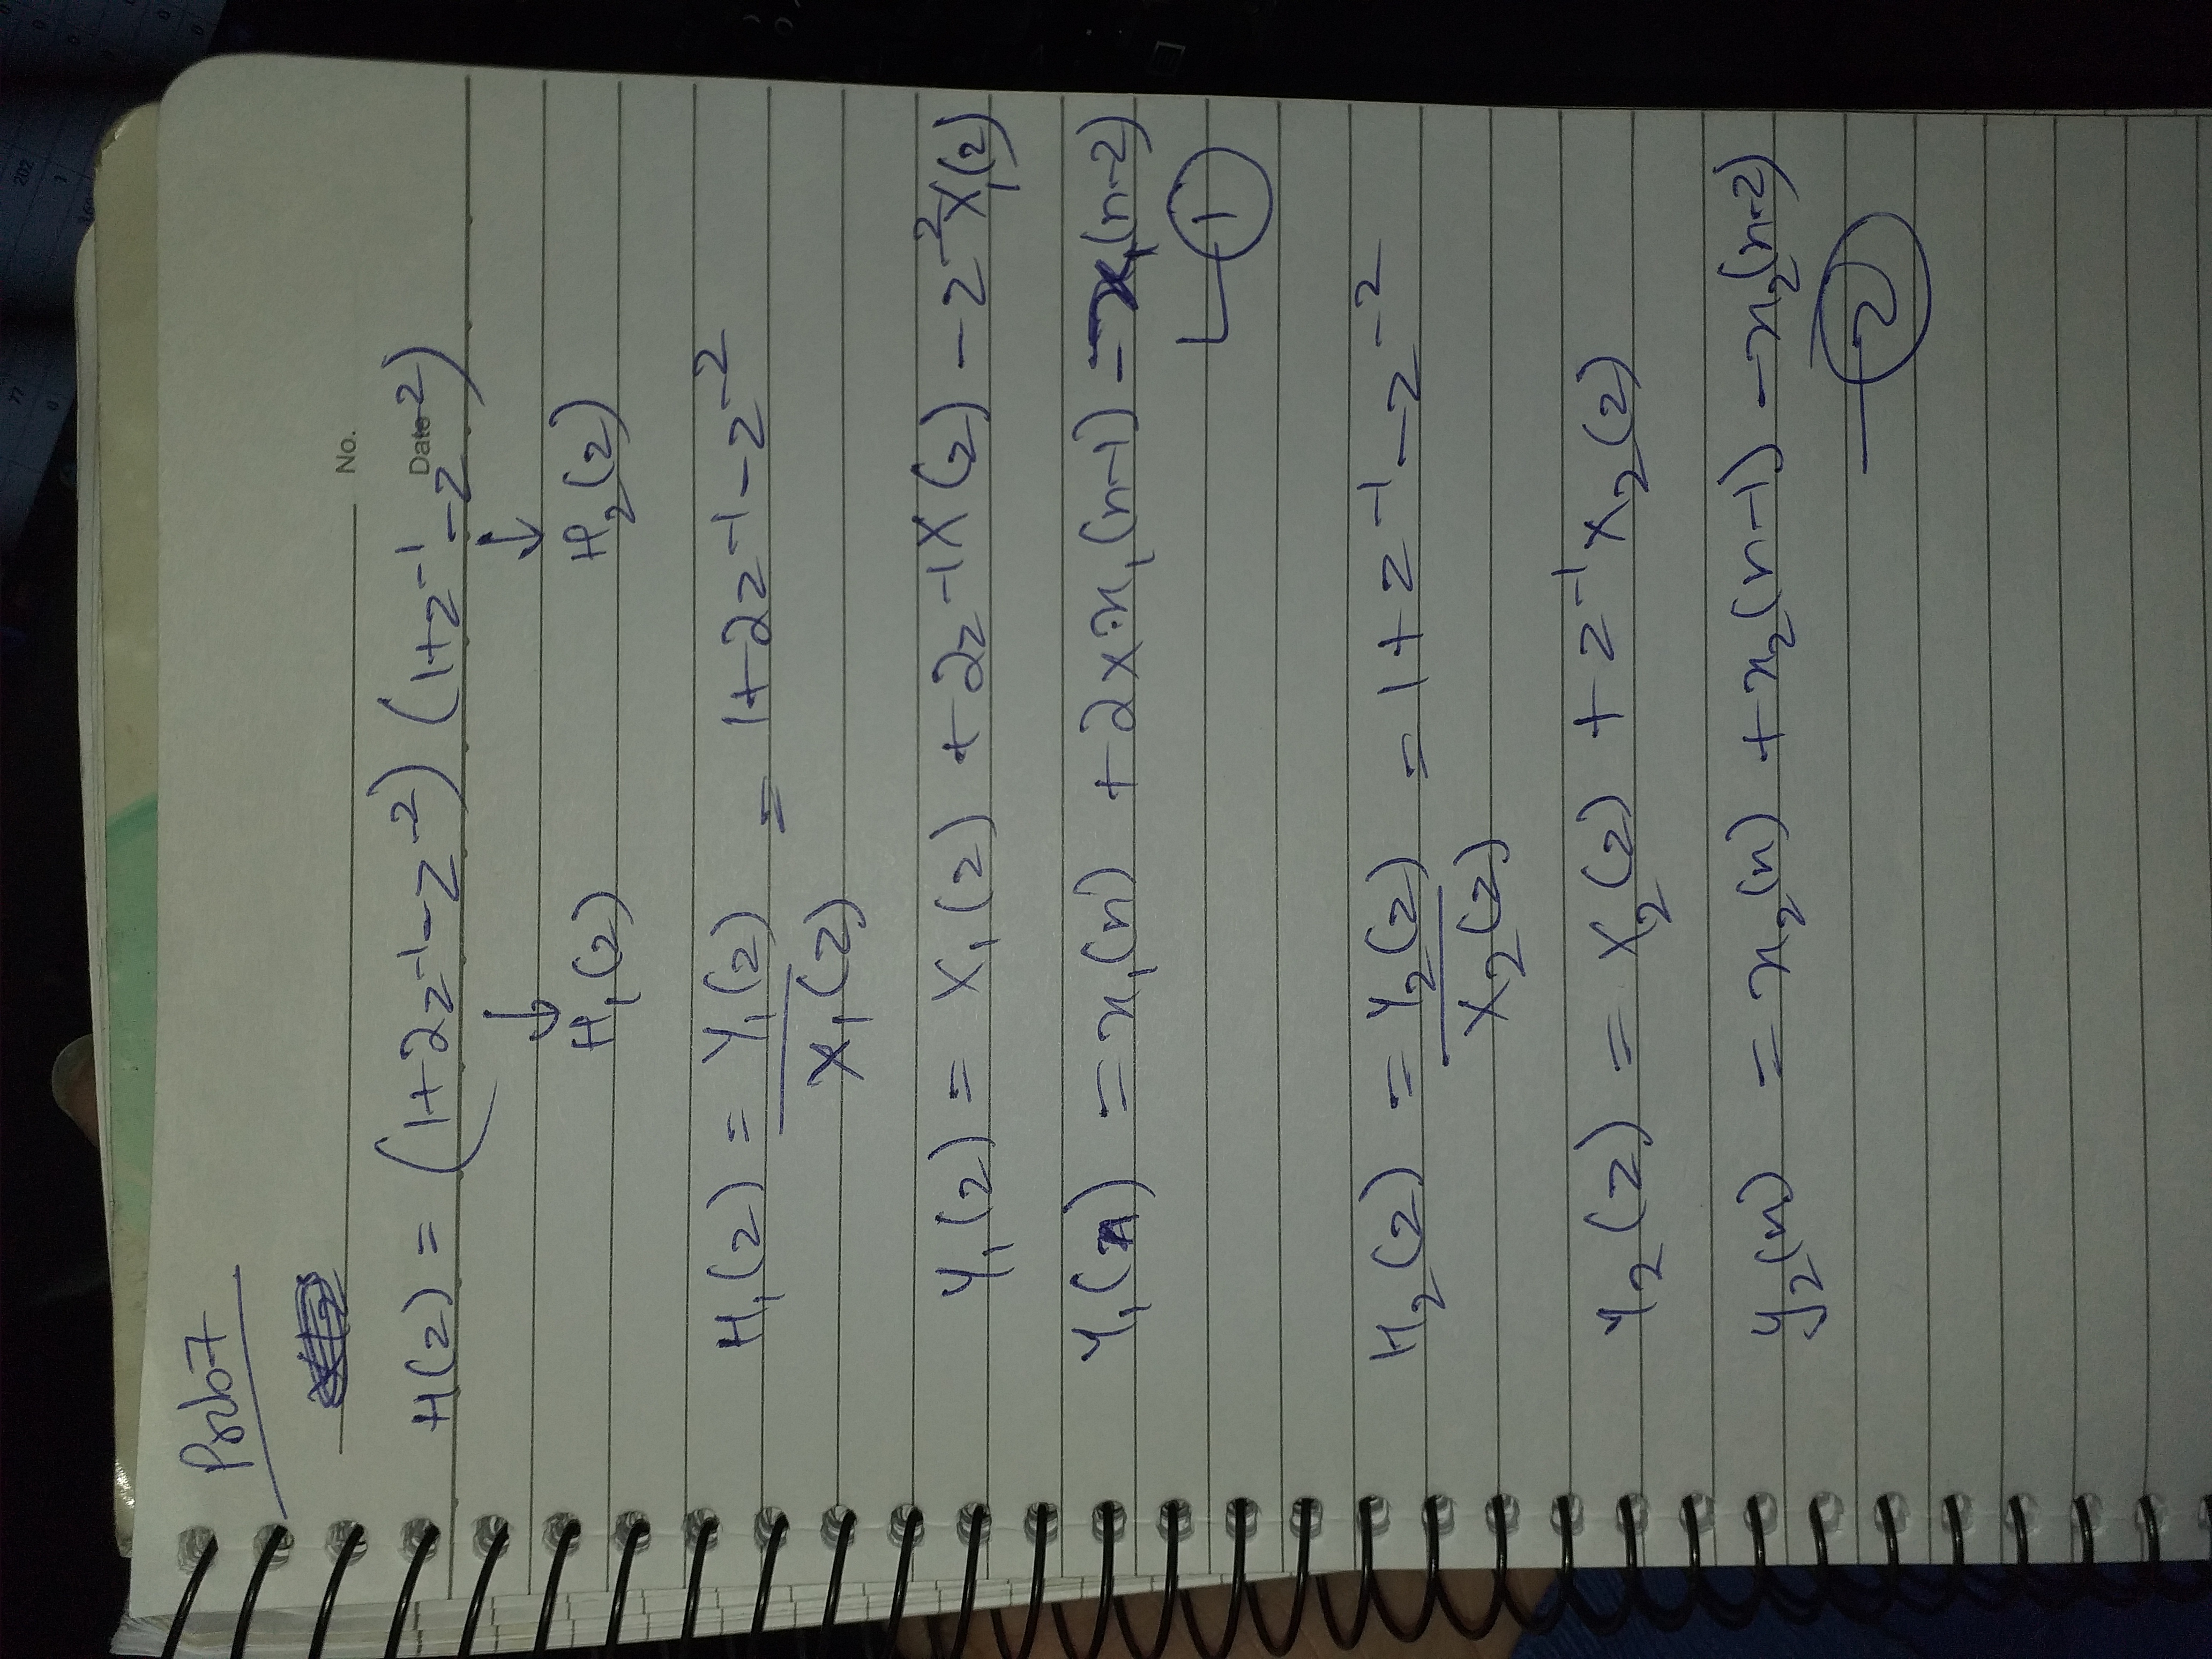 77 202
0 1
Prob7
No.
Date
H(z) = (1+2z⁻¹-z⁻²) (1+z⁻¹-z⁻²)
↓ ↓
H₁(z) H₂(z)
H₁(z) = Y₁(z) = 1+2z⁻¹-z⁻²
X₁(z)
Y₁(z) = X₁(z) + 2z⁻¹X(z) - z⁻²X₁(z)
Y₁(n) = x₁(n) + 2x x₁(n-1) - x₁(n-2)
1
H₂(z) = Y₂(z) = 1+z⁻¹-z⁻²
X₂(z)
Y₂(z) = X₂(z) + z⁻¹X₂(z)
y₂(n) = x₂(n) + x₂(n-1) - x₂(n-2)
2